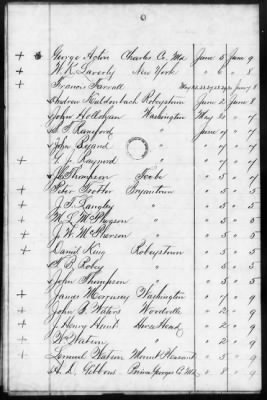 + George Acton Charles Co. Md June 5 June 9
+ W. K. Laverty New York " 6 " 8
+ Francis Farrall May June 8
Andrew Kaldenbach Robeystown June 2 June 8
John Hollahan Washington May 20 " "
S. T. Raniford June " " "
John Ryand " " "
+ G. J. Raynord " "
J. Thompson Tee be " 5 " 5
+ Peter Trotter Bryantown " 5 " 5
+ J. T. Langley " 5 " 5
+ M. L. McPhegson " 5 " 5
+ J. W. McPherson " 5 " 5
+ Daniel King Robeystown " 5 " 5
F. B. Robey " 5 " 5
John Thompson " 5 " 5
+ James Morrisey Washington " 7 " 9
+ John B. Waters Woodville " 2 " 9
+ J. Henry Hunt Horse Head " 2 " 9
+ Wm Watson " 2 " "
+ Lemuel Watson Mount Pleasant " 5 " 9
+ A. L. Gibbons Prince Georges C. Md " 8 " 9